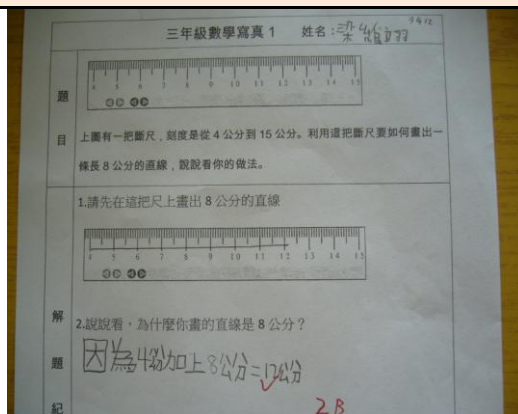 三年級數學寫真 1 姓名:梁
4 5 6 7 8 9 10 11 12 13 14 15
題目
上圖有一把斷尺,刻度是從 4 公分到 15 公分。利用這把斷尺要如何畫出一
條長 8 公分的直線,說說看你的做法。
1.請先在這把尺上畫出 8 公分的直線
4 5 6 7 8 9 10 11 12 13 14 15
解題紀
2.說說看,為什麼你畫的直線是 8 公分?
因為4公分加上8公分=12公分
2B